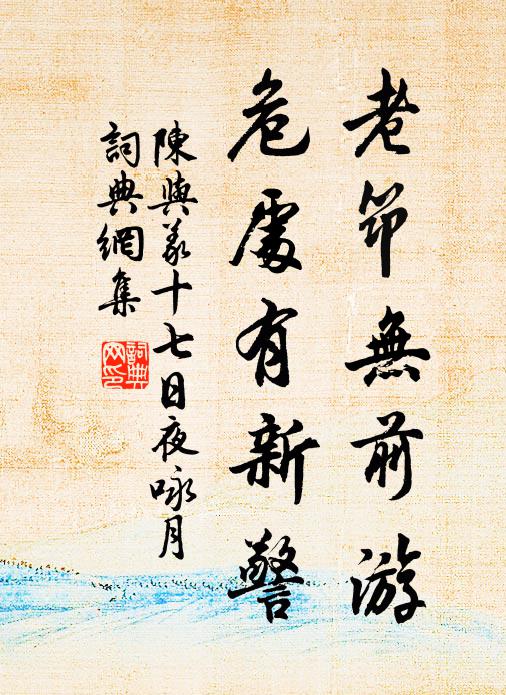 老筇無前游
危處有新警
陳與義十七日夜咏月
詞典網集
詞典
网印